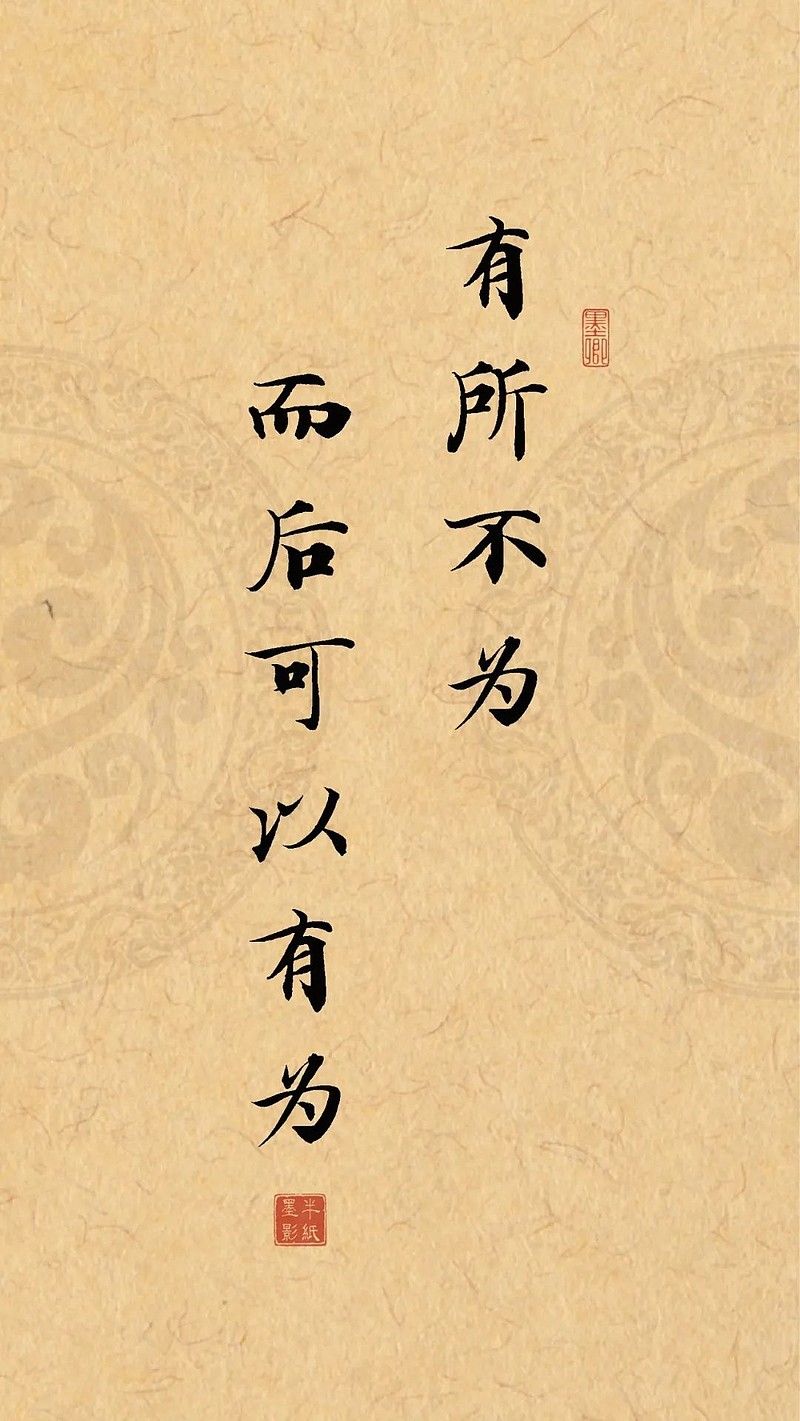 墨卿
有所不为
而后可以有为
半紙
墨影